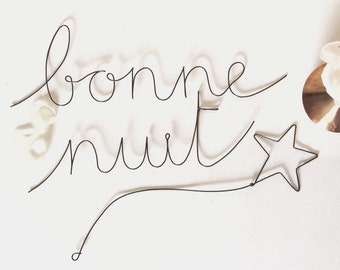 bonne
nuit